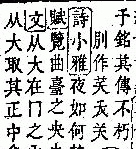 于銘其傳不朽
作
詩小雅夜如何
賦覽曲臺之央
文从大在冂之
从大取其正中